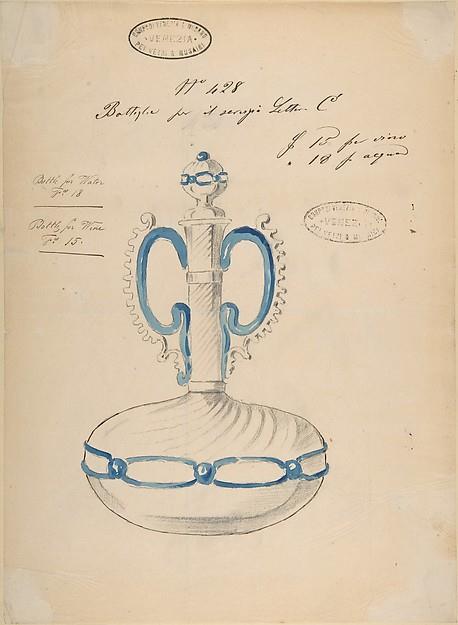 COMPAGNIA VENEZIA E MURANO
VENEZIA
PEI VETRI & MUSAICI
No 428
Bottiglie per il servizio Letter C
f 15 per vino
" 18 p acqua
Bottle for Water
Fr 18
Bottle for Wine
Fr 15.
COMPAGNIA VENEZIA E MURANO
VENEZIA
PEI VETRI & MUSAICI